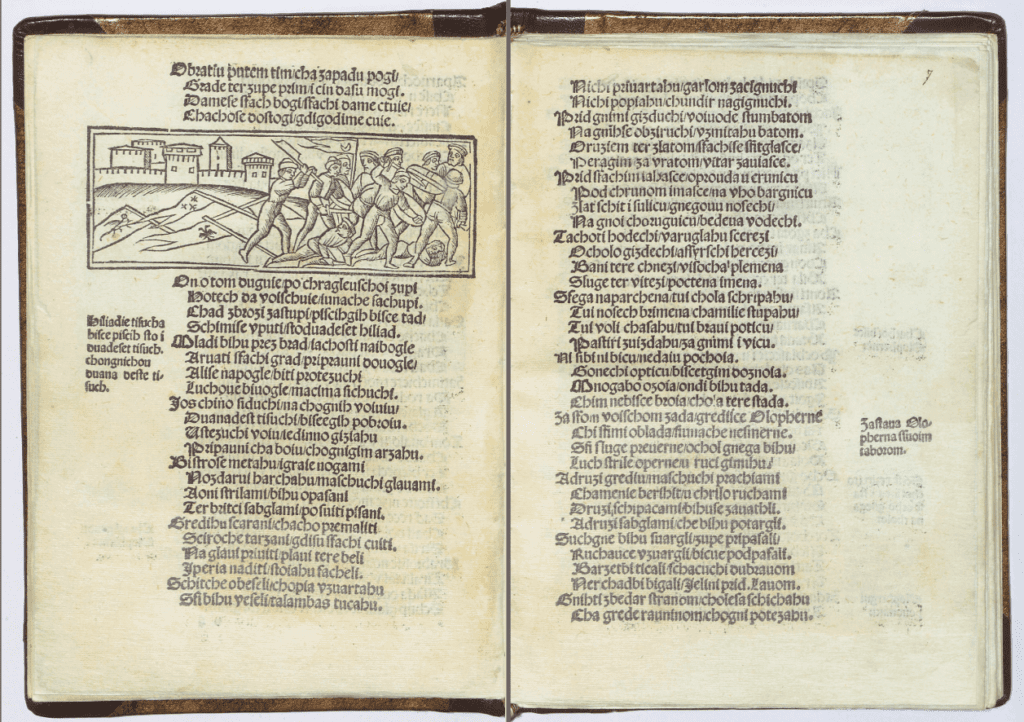 Obratiu putem tim/cha zapadu pogi/
Grade ter zupe prim/i cin dasu mogi.
Damese ssach bogi/ssachi dame ctuie/
Chachose dostogi/gdigodime cuie.
On o tom duguie/po chragleuschoi zupi
Hotech da voischuie/iunache sachupi.
Chad zbrozi zastupi/piscihgih bisce tad/
Schimise vputi/stoduadeset hiliad.
Hiliadie tisucha
bisce piscih sto i
duadeset tisuch.
chongnichou
duana deste ti-
such.
Mladi bihu prez brad/iachosti naibogle
Aruati ssachi grad/priprauni douogle/
Alise napogle/biti protezuchi
Luchoue biuogle/macima sichuchi.
Jos chino siduchi/na chognih voiuiu/
Duanadest tisuchi/biseegih pobroiu.
Ustezuchi voiu/iedinno gizlahu
Pripauni cha boiu/chognigim arzahu.
Bistrose metahu/igraie nogami
Nozdarui harchahu/maschuchi glauami.
Aoni strilami/bihu opasani
Ter britci sabglami/po suiti pisani.
Gredihu scarani/chacho premaliti
Sciroche tarzani/gdisu ssachi cuiti.
Na glaui priuiti/plaui tere beli
Iperia naditi/stoiahu facheli.
Schitche obeseli/chopia vzuartahu
Ssi bihu veseli/talambas tucahu.
7
Nichi priuartahu/garlom zacignuchi
Nichi popiahu/chundir nagignuchi.
Prid gnimi gizduchi/voiuode stumbatom
Na gnihse obziruchi/vzmitahu batom.
Oruziem ter zlatom/ssachise ssitglasce/
Peragim za vratom/vitar zauiasce.
Prid ssachim iahasce/oprouda u crunicu
Pod chrunom imasce/na vho bargnicu
Zlat schit i sulicu/gnegouu nosechi/
Na gnoi choruguicu/bedeua vodechi.
Tachoti hodechi/varuglahu scerezi
Ocholo gizdechi/assyrschi hercezi/
Bani tere chnezi/visocha plemena
Sluge ter vitezi/poctena imena.
Szega naparchena/tui chola schripahu/
Tui nosech brimena/chamilie stupahu/
Tui voli chasahu/tui braui poticu/
Pastiri zuizdahu/za gnimi i vicu.
Ni sibi ni bicu/nedaiu pochoia.
Gonechi opticu/biscetgim doznoia.
Mnogabo ozoia/ondi bihu tada.
Chim nebisce broia/cho'a tere stada.
Za ssom voischom zada/gredisce Olopherne
Chi ssimi oblada/siunache nesinerne.
Ssi sluge preuerne/ochol gnega bihu/
Luch strile operne/u ruci gimihu/
Zastaua Olo-
pherna ssuoim
taborom.
Adruzi grediu/maschuchi prachiami
Chamenie berihu/u chrilo ruchami
Druzi/schipacami/bihuse zauathli.
Adruzi sabglami/che bihu potargli.
Suchgne bihu suargli/zupe pripasali/
Ruchauce vzuargli/bicue podpasali.
Barzetbi ticali/schacuchi dubrauom
Ner chadbi bigali/Jelini prid Lauom.
Gnihti zbedar stranom/cholesa schichahu
Cha grede rauninom/chogni potezahu.